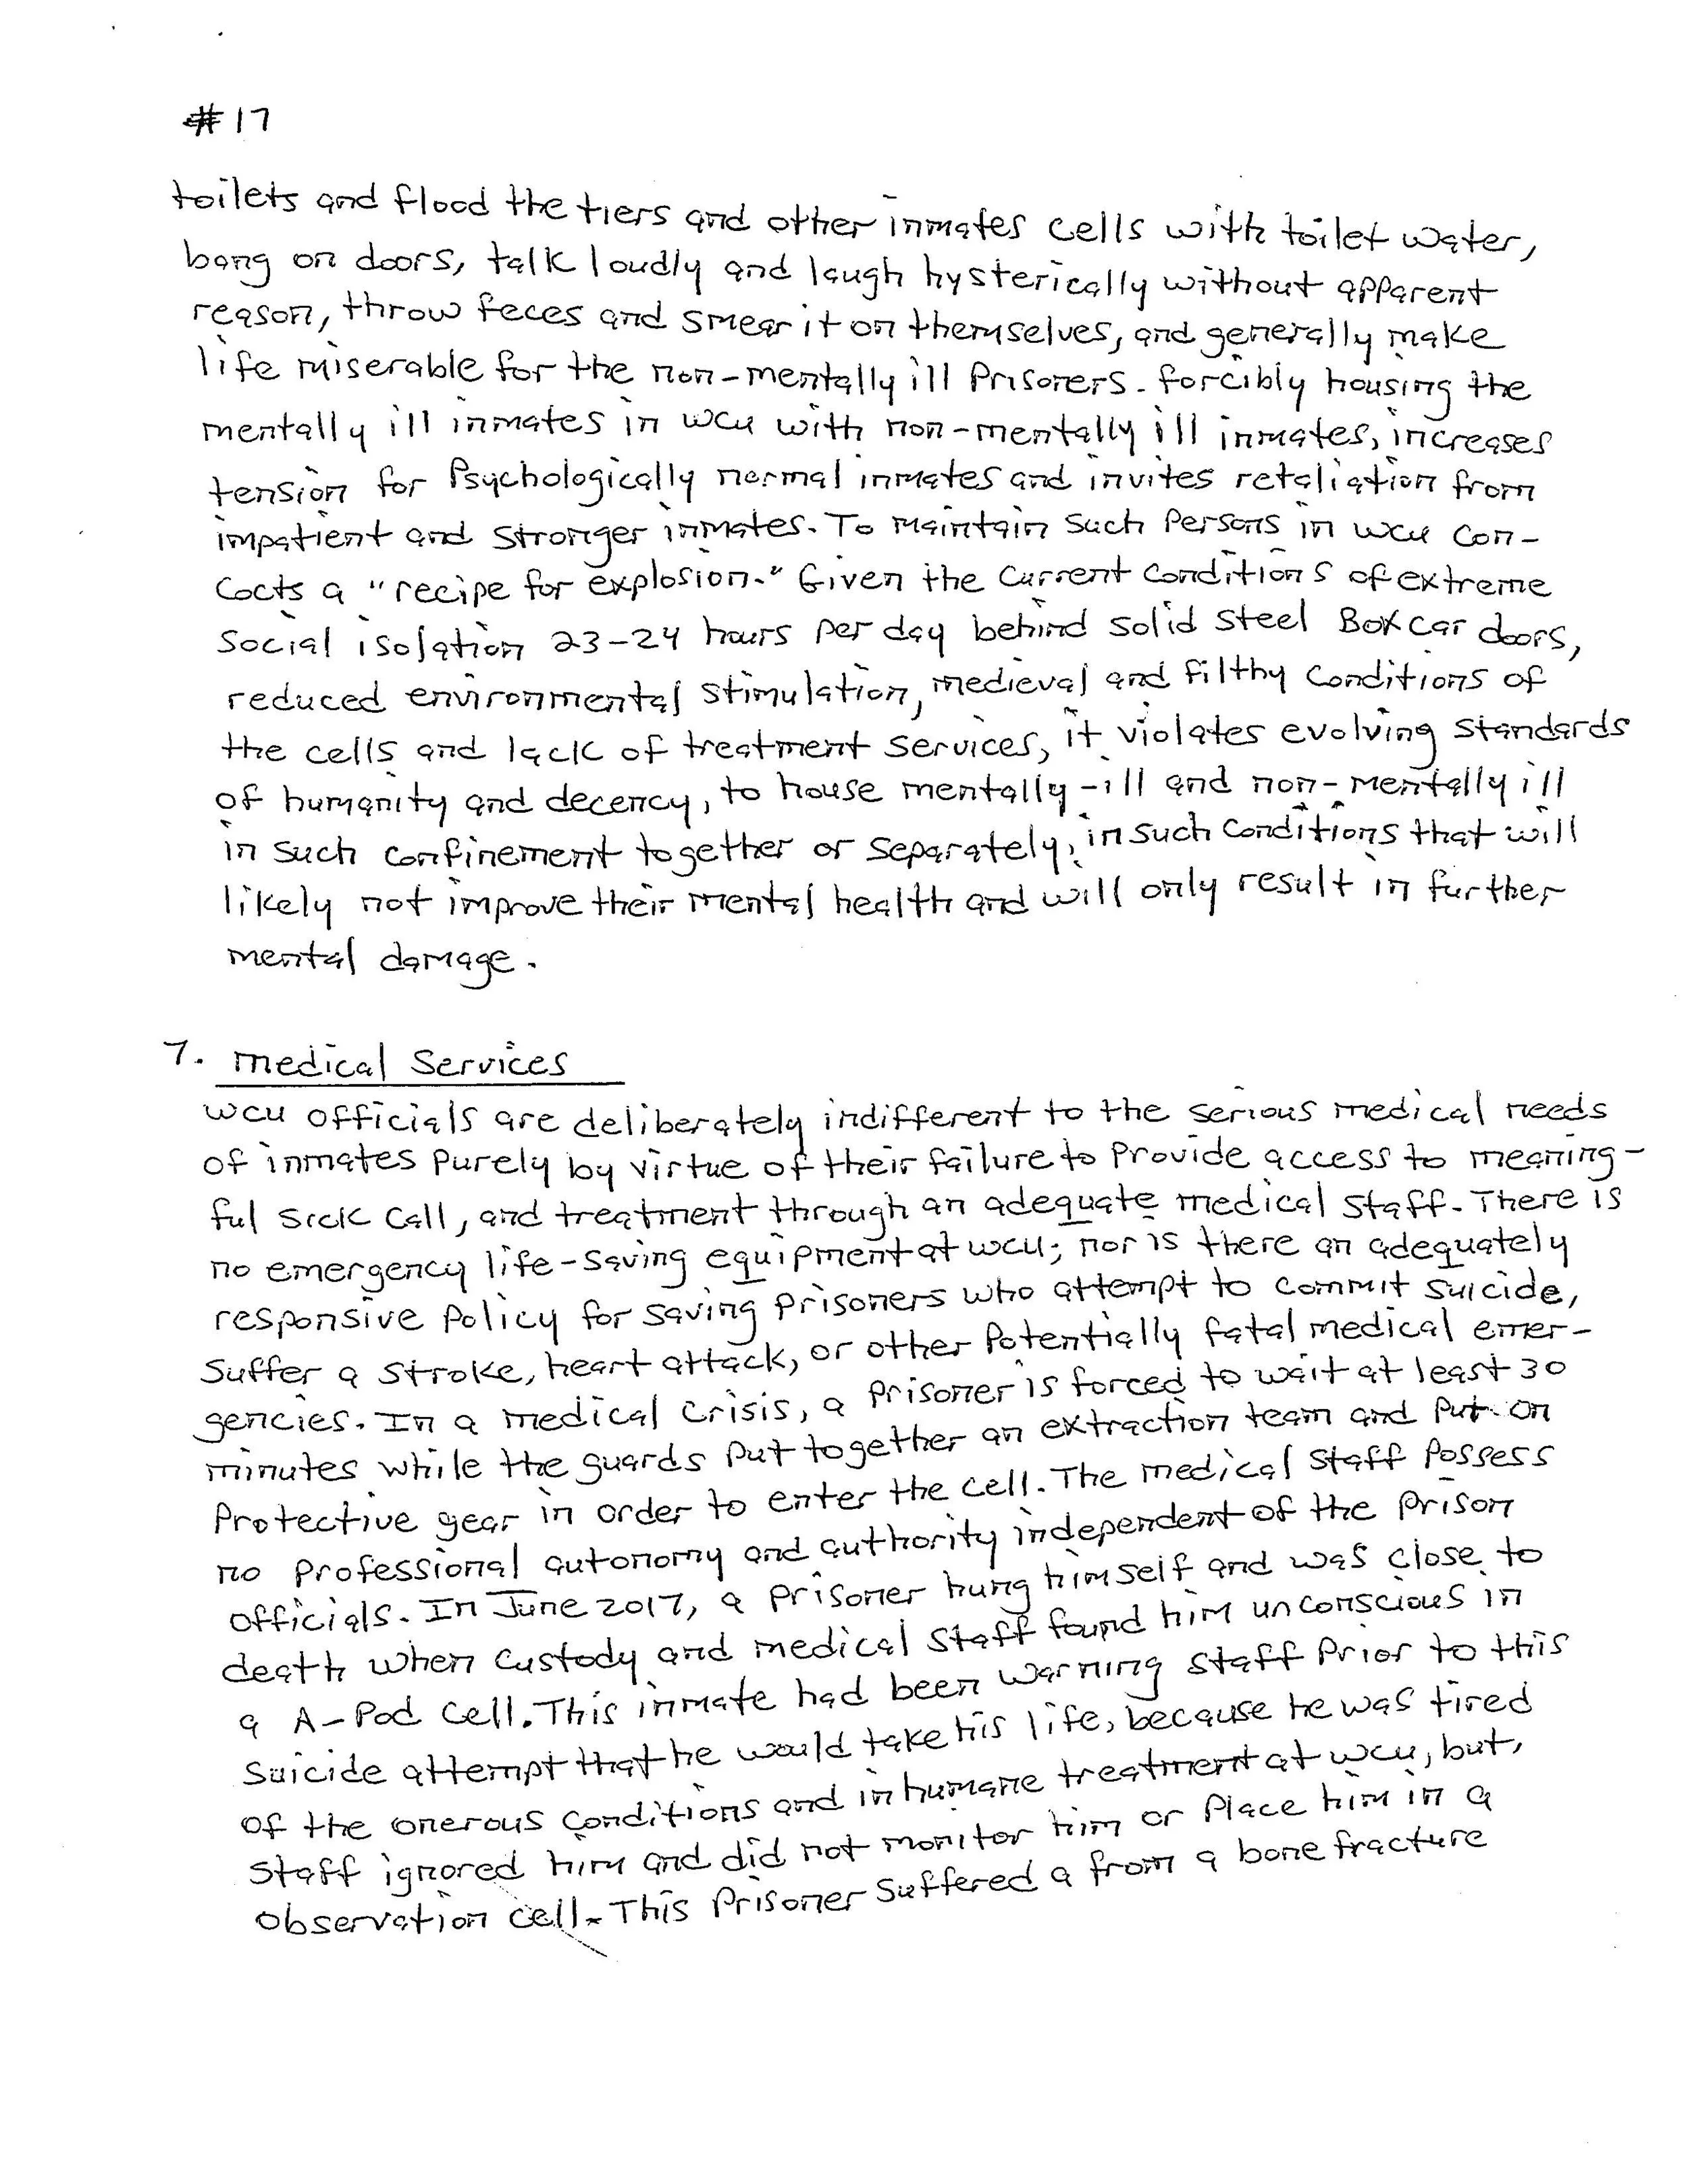 #17
toilets and flood the tiers and other inmates cells with toilet water,
bang on doors, talk loudly and laugh hysterically without apparent
reason, throw feces and smear it on themselves, and generally make
life miserable for the non-mentally ill Prisoners. forcibly housing the
mentally ill inmates in WCU with non-mentally ill inmates, increases
tension for Psychologically normal inmates and invites retaliation from
impatient and stronger inmates. To maintain such Persons in WCU con-
cocts a "recipe for explosion." Given the current conditions of extreme
social isolation 23-24 hours per day behind solid steel Boxcar doors,
reduced environmental stimulation, medieval and filthy conditions of
the cells and lack of treatment services, it violates evolving standards
of humanity and decency, to house mentally-ill and non-mentally ill
in such confinement together or separately, in such conditions that will
likely not improve their mental health and will only result in further
mental damage.
7. Medical Services
WCU officials are deliberately indifferent to the serious medical needs
of inmates Purely by virtue of their failure to Provide access to meaning-
ful sick call, and treatment through an adequate medical staff. There is
no emergency life-saving equipment at WCU; nor is there an adequately
responsive Policy for saving Prisoners who attempt to commit suicide,
suffer a stroke, heart attack, or other Potentially fatal medical emer-
gencies. In a medical crisis, a Prisoner is forced to wait at least 30
minutes while the guards put together an extraction team and Put on
Protective gear in order to enter the cell. The medical staff Possess
no Professional autonomy and authority independent of the Prison
officials. In June 2017, a Prisoner hung himself and was close to
death when custody and medical staff found him unconscious in
a A-Pod cell. This inmate had been warning staff Prior to this
suicide attempt that he would take his life, because he was tired
of the onerous conditions and inhumane treatment at WCU, but,
staff ignored him and did not monitor him or Place him in a
observation cell. This Prisoner suffered a from a bone fracture